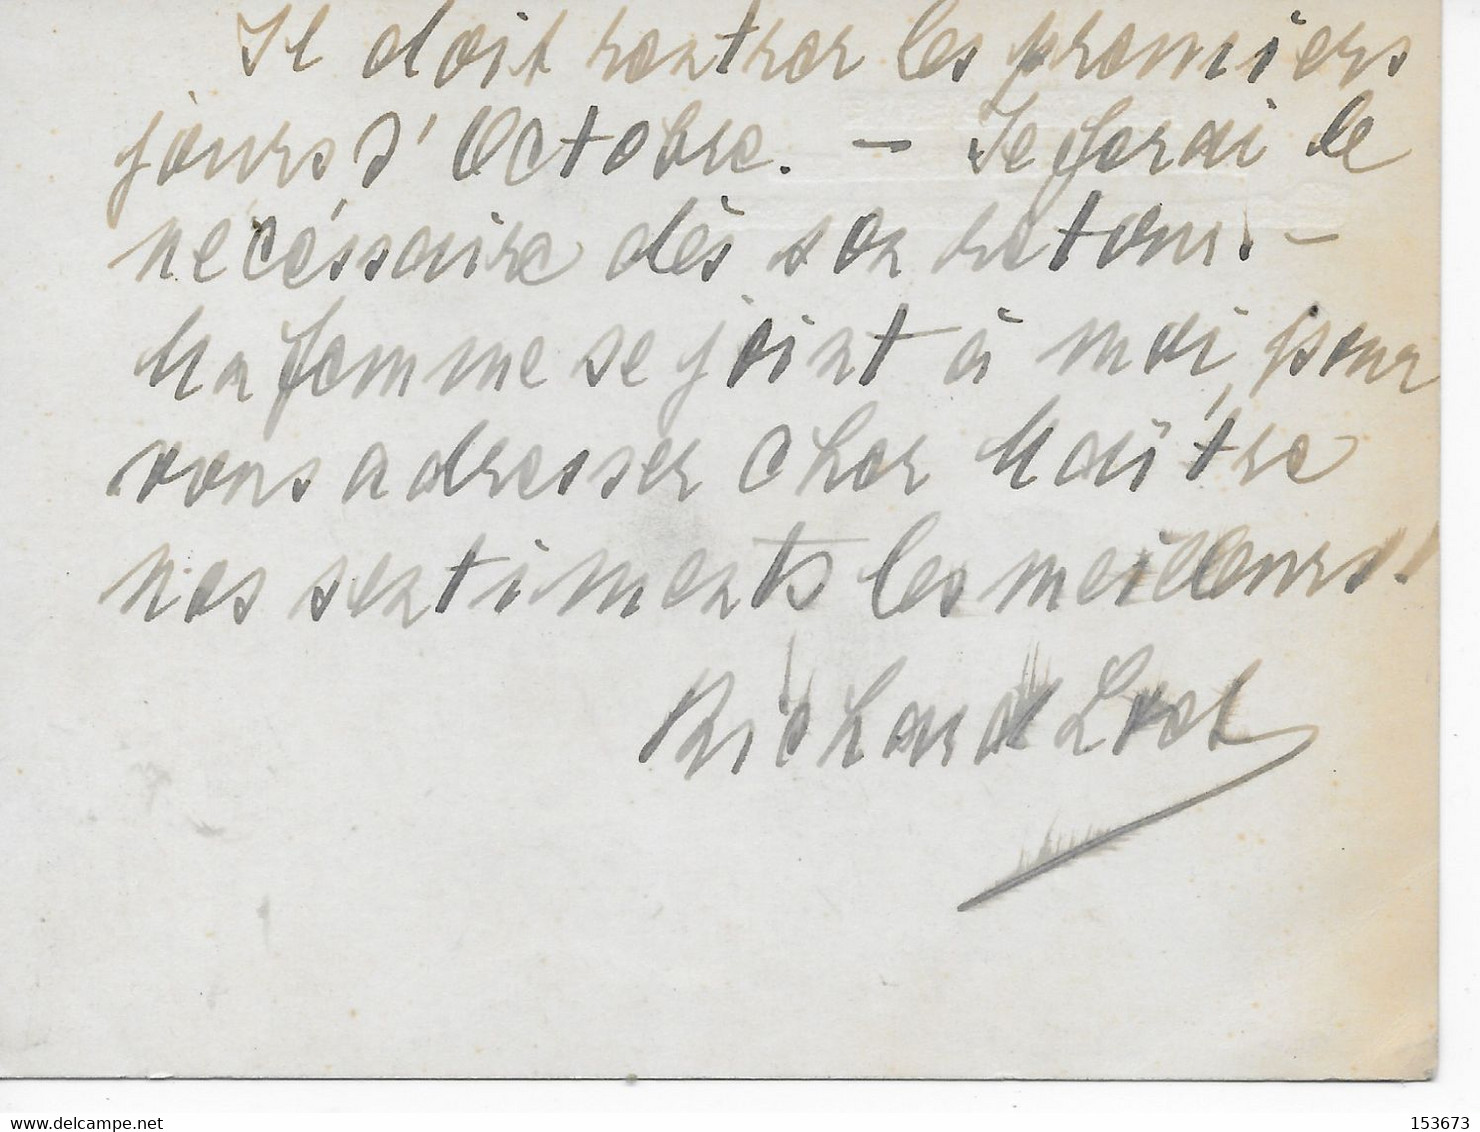 Il doit rentrer les premiers
jours d'Octobre. – Je ferai le
necéssaire dès son retour. –
Ma femme se joint à moi, pour
vous adresser cher Maître
nos sentiments les meilleurs!
Richard
delcampe.net
153673